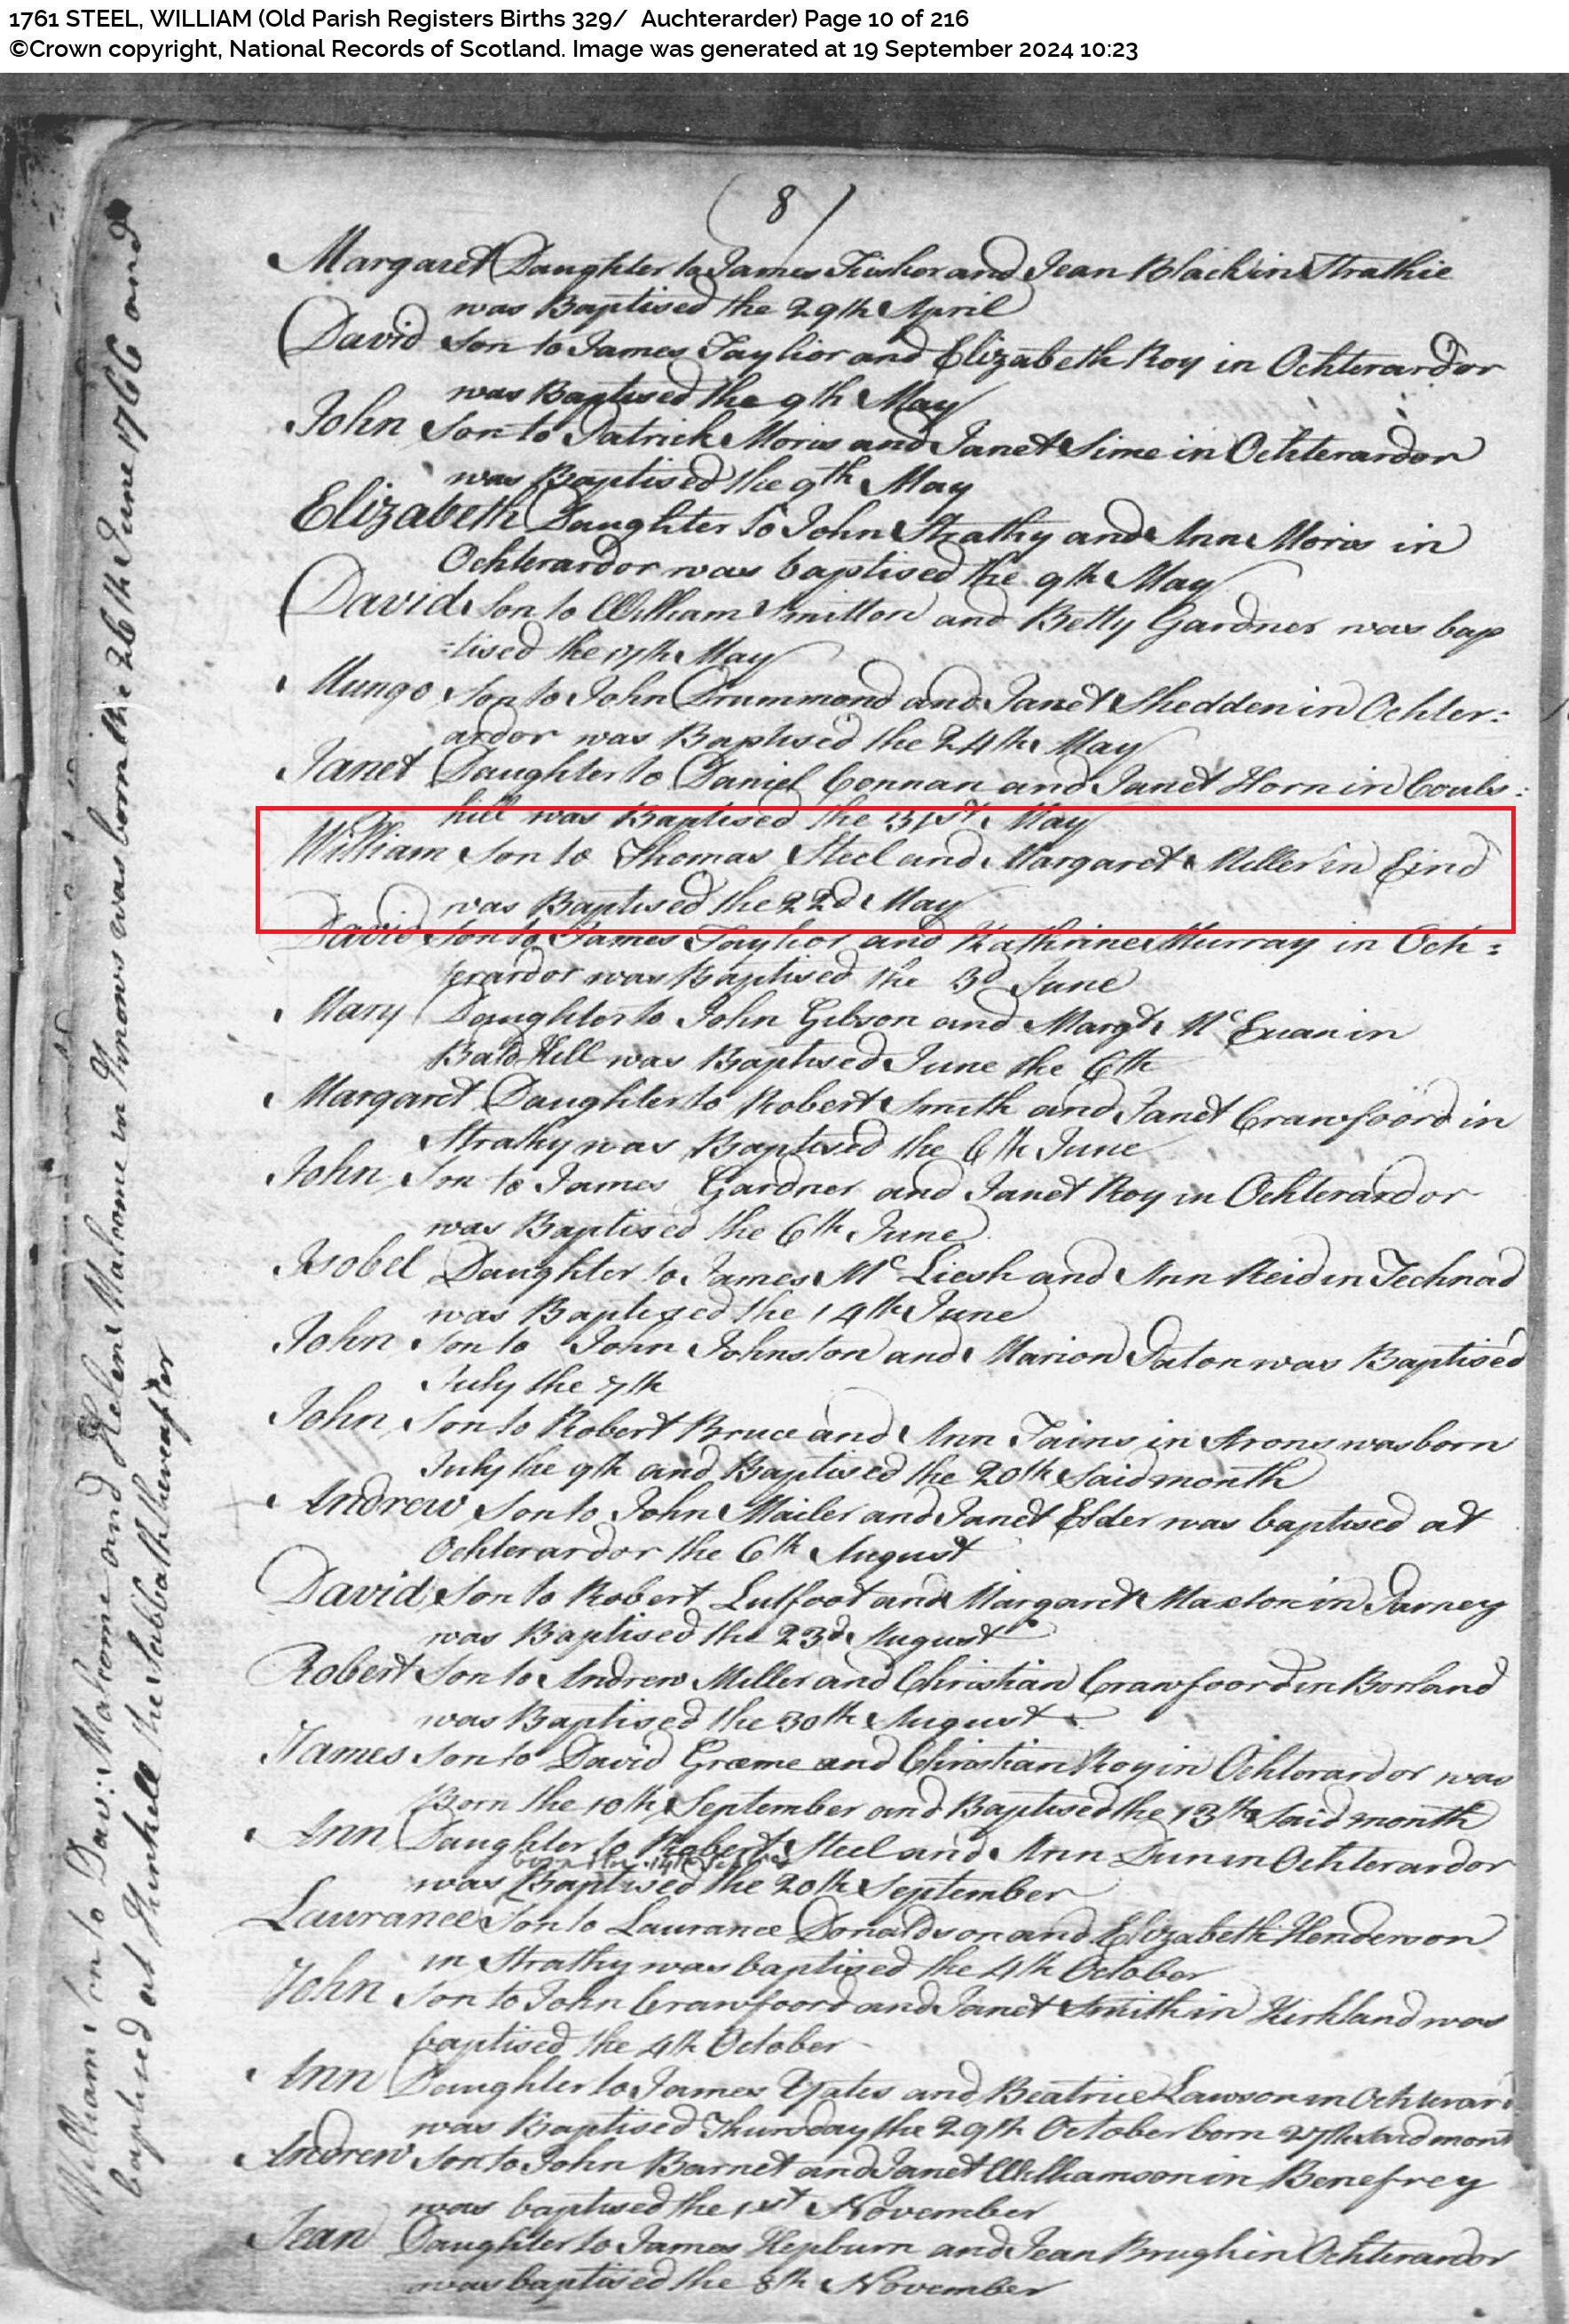 1761 STEEL, WILLIAM (Old Parish Registers Births 329/ Auchterarder) Page 10 of 216
©Crown copyright, National Records of Scotland. Image was generated at 19 September 2024 10:23
(8)
Margaret Daughter to James Fisher and Jean Black in Strathie
was Baptised the 29th April
David Son to James Taylior and Elizabeth Roy in Ochterardor
was Baptised the 9th May
John Son to Patrick Moris and Janet Sime in Ochterardor
was Baptised the 9th May
Elizabeth Daughter to John Strathy and Ann Moris in
Ochterardor was baptised the 9th May
David Son to William Smitton and Betty Gardner was bap
=tised the 17th May
Mungo Son to John Drummond and Janet Shedden in Ochter:
ardor was Baptised the 24th May
Janet Daughter to Daniel Connan and Janet Horn in Couls:
hill was Baptised the 31st May
William Son to Thomas Steel and Margaret Miller in Eind
was Baptised the 22d May
David Son to James Taylior and Kathrine Murray in Och=
terardor was Baptised the 3d June
Mary Daughter to John Gibson and Margt McEuan in
Bald Hill was Baptised June the 6th
Margaret Daughter to Robert Smith and Janet Crawfoord in
Strathy was Baptised the 6th June
John Son to James Gardner and Janet Roy in Ochterardor
was Baptised the 6th June
Isobel Daughter to James Mc Liesh and Ann Reid in Technad
was Baptized the 14th June
John Son to John Johnston and Marion Paton was Baptised
July the 7th
John Son to Robert Bruce and Ann Fains in Arons was born
July the 9th and Baptised the 20th Said month
Andrew Son to John Mailer and Janet Elder was baptised at
Ochterardor the 6th August
David Son to Robert Lutfoot and Margaret Maxton in Parney
was Baptised the 23d August
Robert Son to Andrew Miller and Christian Crawfoord in Borland
was Baptised the 30th August
James Son to David Græme and Christian Roy in Ochterardor was
Born the 10th September and Baptised the 13th Said month
Ann Daughter to Robert Steel and Ann Dun in Ochterardor
born the 14th
was Baptised the 20th September
Laurance Son to Laurance Donaldson and Elizabeth Henderson
in Strathy was baptised the 4th October
John Son to John Crawfoord and Janet Smith in Kirkland was
baptised the 4th October
Ann Daughter to James Yates and Beatrice Lawson in Ochterar
was Baptised Thursday the 29th October born 27th said mont
Andrew Son to John Barnet and Janet Williamson in Benefrey
was baptised the 1st November
Jean Daughter to James Hepburn and Jean Brugh in Ochterardor
was baptised the 8th November
William Son to Dav: Malcome and Helen Malcome in Knows was born the 26th June 1766 and
baptised at Kirkhell the Sabbath thereafter